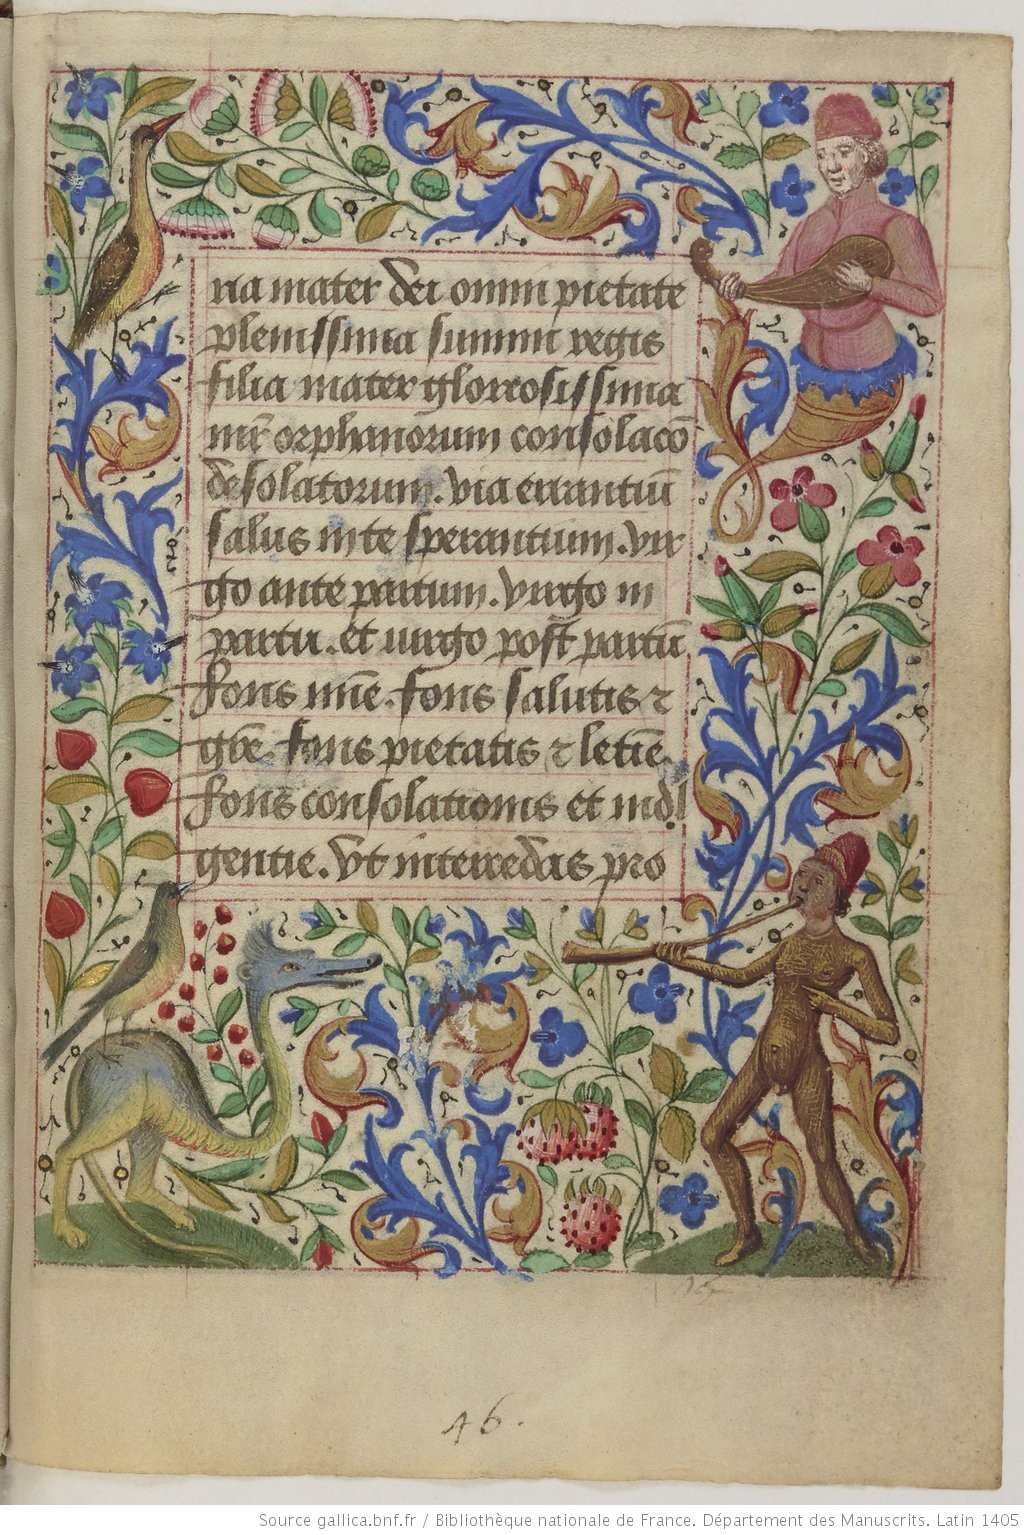 ria mater dei omni pietate
plenissima summi regis
filia mater gloriosissima
mr̄ orphanorum consolacō
desolatorum. via errantiū
salus in te sperantium. vir
go ante partum. virgo in
partu. et uirgo post partū
fons mīe. fons salutis ⁊
gr̄e fons pietatis ⁊ leticīe
fons consolationis et indul
gentie. Vt intercedas pro
46.
Source gallica.bnf.fr / Bibliothèque nationale de France. Département des Manuscrits. Latin 1405